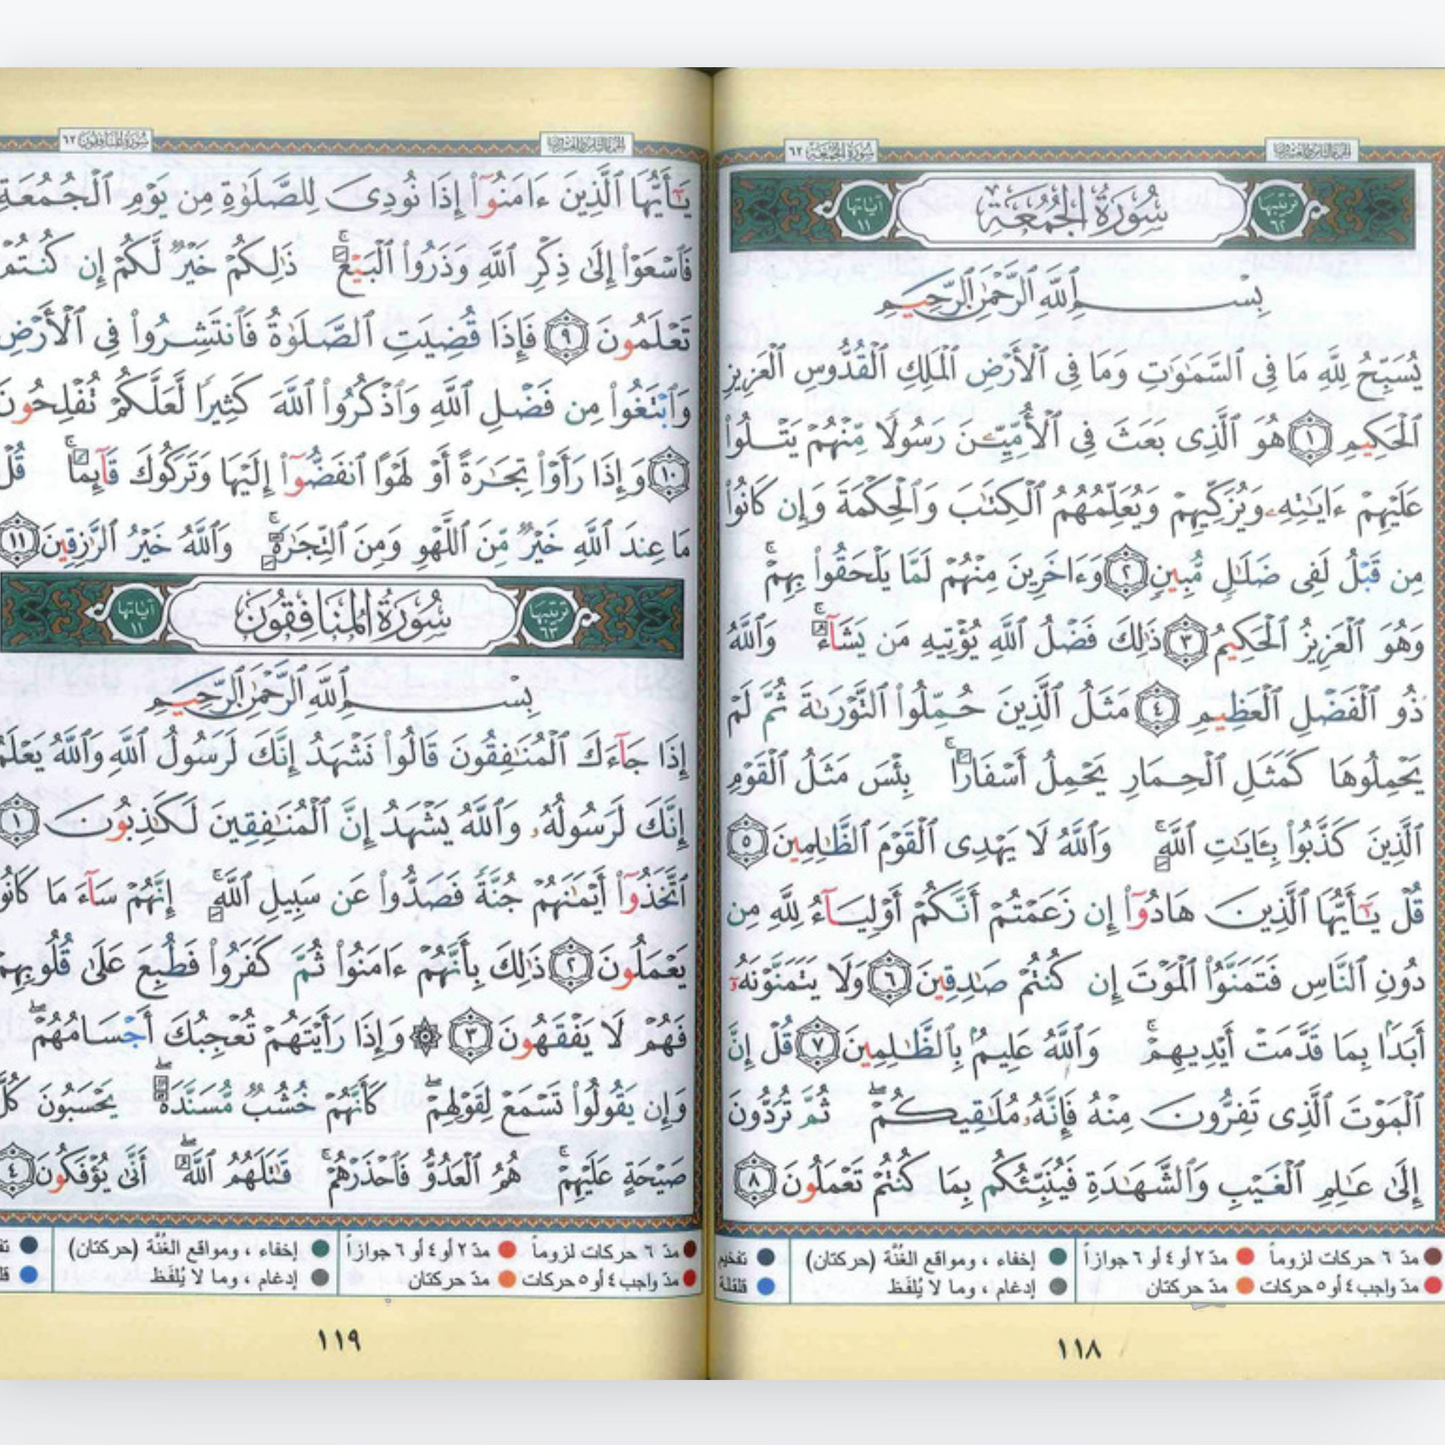 الجزء الثامن والعشرون
سورة الجمعة ٦٢
ترتيبها ٦٢
سُورَةُ الجُمُعَة
آياتها ١١
بِسْمِ ٱللَّهِ ٱلرَّحْمَٰنِ ٱلرَّحِيمِ
يُسَبِّحُ لِلَّهِ مَا فِى ٱلسَّمَٰوَٰتِ وَمَا فِى ٱلْأَرْضِ ٱلْمَلِكِ ٱلْقُدُّوسِ ٱلْعَزِيزِ
ٱلْحَكِيمِ ١ هُوَ ٱلَّذِى بَعَثَ فِى ٱلْأُمِّيِّـۧنَ رَسُولًا مِّنْهُمْ يَتْلُوا۟
عَلَيْهِمْ ءَايَٰتِهِۦ وَيُزَكِّيهِمْ وَيُعَلِّمُهُمُ ٱلْكِتَٰبَ وَٱلْحِكْمَةَ وَإِن كَانُوا۟
مِن قَبْلُ لَفِى ضَلَٰلٍ مُّبِينٍ ٢ وَءَاخَرِينَ مِنْهُمْ لَمَّا يَلْحَقُوا۟ بِهِمْ ۚ
وَهُوَ ٱلْعَزِيزُ ٱلْحَكِيمُ ٣ ذَٰلِكَ فَضْلُ ٱللَّهِ يُؤْتِيهِ مَن يَشَآءُ ۚ وَٱللَّهُ
ذُو ٱلْفَضْلِ ٱلْعَظِيمِ ٤ مَثَلُ ٱلَّذِينَ حُمِّلُوا۟ ٱلتَّوْرَىٰةَ ثُمَّ لَمْ
يَحْمِلُوهَا كَمَثَلِ ٱلْحِمَارِ يَحْمِلُ أَسْفَارًۢا ۚ بِئْسَ مَثَلُ ٱلْقَوْمِ
ٱلَّذِينَ كَذَّبُوا۟ بِـَٔايَٰتِ ٱللَّهِ ۚ وَٱللَّهُ لَا يَهْدِى ٱلْقَوْمَ ٱلظَّٰلِمِينَ ٥
قُلْ يَٰٓأَيُّهَا ٱلَّذِينَ هَادُوٓا۟ إِن زَعَمْتُمْ أَنَّكُمْ أَوْلِيَآءُ لِلَّهِ مِن
دُونِ ٱلنَّاسِ فَتَمَنَّوُا۟ ٱلْمَوْتَ إِن كُنتُمْ صَٰدِقِينَ ٦ وَلَا يَتَمَنَّوْنَهُۥٓ
أَبَدًۢا بِمَا قَدَّمَتْ أَيْدِيهِمْ ۚ وَٱللَّهُ عَلِيمٌۢ بِٱلظَّٰلِمِينَ ٧ قُلْ إِنَّ
ٱلْمَوْتَ ٱلَّذِى تَفِرُّونَ مِنْهُ فَإِنَّهُۥ مُلَٰقِيكُمْ ۖ ثُمَّ تُرَدُّونَ
إِلَىٰ عَٰلِمِ ٱلْغَيْبِ وَٱلشَّهَٰدَةِ فَيُنَبِّئُكُم بِمَا كُنتُمْ تَعْمَلُونَ ٨
مدّ ٦ حركات لزوماً مدّ ٢ أو ٤ أو ٦ جوازاً إخفاء ، ومواقع الغُنَّة (حركتان) تفخيم
مدّ واجب ٤ أو ٥ حركات مدّ حركتان إدغام ، وما لا يُلفَظ قلقلة
١١٨
الجزء الثامن والعشرون
سورة المنافقون ٦٣
يَٰٓأَيُّهَا ٱلَّذِينَ ءَامَنُوٓا۟ إِذَا نُودِىَ لِلصَّلَوٰةِ مِن يَوْمِ ٱلْجُمُعَةِ
فَٱسْعَوْا۟ إِلَىٰ ذِكْرِ ٱللَّهِ وَذَرُوا۟ ٱلْبَيْعَ ۚ ذَٰلِكُمْ خَيْرٌ لَّكُمْ إِن كُنتُمْ
تَعْلَمُونَ ٩ فَإِذَا قُضِيَتِ ٱلصَّلَوٰةُ فَٱنتَشِرُوا۟ فِى ٱلْأَرْضِ
وَٱبْتَغُوا۟ مِن فَضْلِ ٱللَّهِ وَٱذْكُرُوا۟ ٱللَّهَ كَثِيرًا لَّعَلَّكُمْ تُفْلِحُونَ
١٠ وَإِذَا رَأَوْا۟ تِجَٰرَةً أَوْ لَهْوًا ٱنفَضُّوٓا۟ إِلَيْهَا وَتَرَكُوكَ قَآئِمًا ۚ قُلْ
مَا عِندَ ٱللَّهِ خَيْرٌ مِّنَ ٱللَّهْوِ وَمِنَ ٱلتِّجَٰرَةِ ۚ وَٱللَّهُ خَيْرُ ٱلرَّٰزِقِينَ ١١
ترتيبها ٦٣
سُورَةُ المُنَافِقُونَ
آياتها ١١
بِسْمِ ٱللَّهِ ٱلرَّحْمَٰنِ ٱلرَّحِيمِ
إِذَا جَآءَكَ ٱلْمُنَٰفِقُونَ قَالُوا۟ نَشْهَدُ إِنَّكَ لَرَسُولُ ٱللَّهِ وَٱللَّهُ يَعْلَمُ
إِنَّكَ لَرَسُولُهُۥ وَٱللَّهُ يَشْهَدُ إِنَّ ٱلْمُنَٰفِقِينَ لَكَٰذِبُونَ ١
ٱتَّخَذُوٓا۟ أَيْمَٰنَهُمْ جُنَّةً فَصَدُّوا۟ عَن سَبِيلِ ٱللَّهِ ۚ إِنَّهُمْ سَآءَ مَا كَانُوا۟
يَعْمَلُونَ ٢ ذَٰلِكَ بِأَنَّهُمْ ءَامَنُوا۟ ثُمَّ كَفَرُوا۟ فَطُبِعَ عَلَىٰ قُلُوبِهِمْ
فَهُمْ لَا يَفْقَهُونَ ٣ ۞ وَإِذَا رَأَيْتَهُمْ تُعْجِبُكَ أَجْسَامُهُمْ ۖ
وَإِن يَقُولُوا۟ تَسْمَعْ لِقَوْلِهِمْ ۖ كَأَنَّهُمْ خُشُبٌ مُّسَنَّدَةٌ ۖ يَحْسَبُونَ كُلَّ
صَيْحَةٍ عَلَيْهِمْ ۚ هُمُ ٱلْعَدُوُّ فَٱحْذَرْهُمْ ۚ قَٰتَلَهُمُ ٱللَّهُ ۖ أَنَّىٰ يُؤْفَكُونَ ٤
مدّ ٦ حركات لزوماً مدّ ٢ أو ٤ أو ٦ جوازاً إخفاء ، ومواقع الغُنَّة (حركتان)
مدّ واجب ٤ أو ٥ حركات مدّ حركتان إدغام ، وما لا يُلفَظ
١١٩